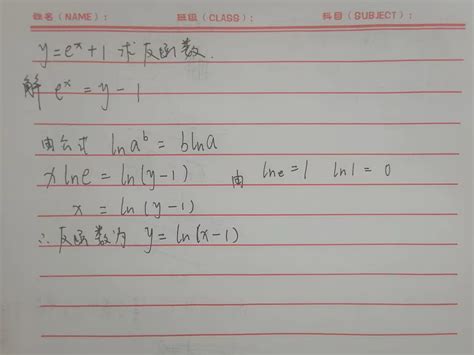 姓名(NAME): 班级(CLASS): 科目(SUBJECT):
y=eˣ+1 求反函数.
解 eˣ = y-1
由公式 lnaᵇ = blna
xlne = ln(y-1) 由 lne=1 ln1=0
x = ln(y-1)
∴反函数为 y=ln(x-1)